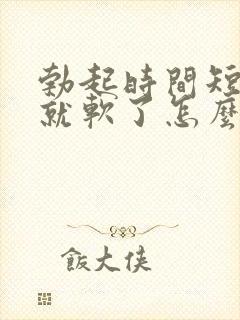 勃起時間短
就軟了怎麼
飯大俠